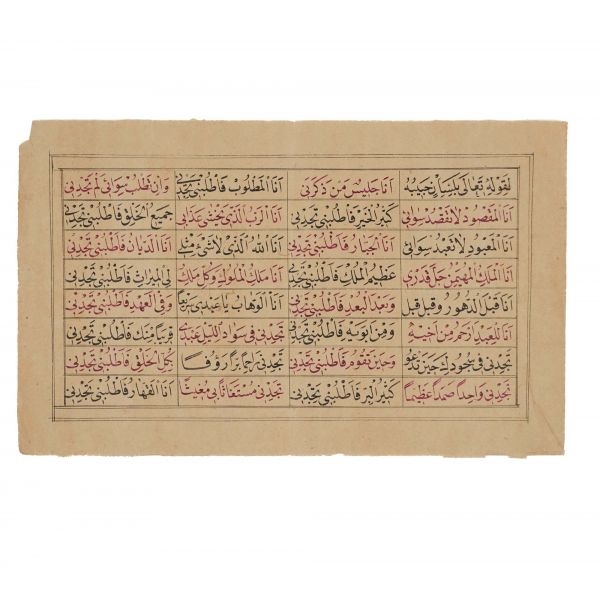 لقوله تعالى بلسان حبيبه انا جليس من ذكرني انا المطلوب فاطلبني تجدني وان تطلب سوائي لم تجدني
انا المقصود لا تقصد سوائي كثير الخير فاطلبني تجدني انا الرب الذي يخشى عذابي جميع الخلق فاطلبني تجدني
انا المعبود لا تعبد سوائي انا الجبار فاطلبني تجدني انا الله الذي لا شئ مثلي انا الديان فاطلبني تجدني
انا الملك المهيمن جل قدري عظيم الملك فاطلبني تجدني انا ملك الملوك وكل ملك لي الميراث فاطلبني تجدني
انا قبل الدهور وقبل قبل وبعد البعد فاطلبني تجدني انا الوهاب يا عبدي سريعا وفي العهد فاطلبني تجدني
انا للعبد ارحم من اخيه ومن ابويه فاطلبني تجدني تجدني في سواد الليل عبدي قريبا منك فاطلبني تجدني
تجدني في سجود له حين يدعو وحين تقوم فاطلبني تجدني تجدني راحما برا رؤفا بكل الخلق فاطلبني تجدني
تجدني واحدا صمدا عظيما كثير البر فاطلبني تجدني تجدني مستغاثا بي مغيثا انا القهار فاطلبني تجدني